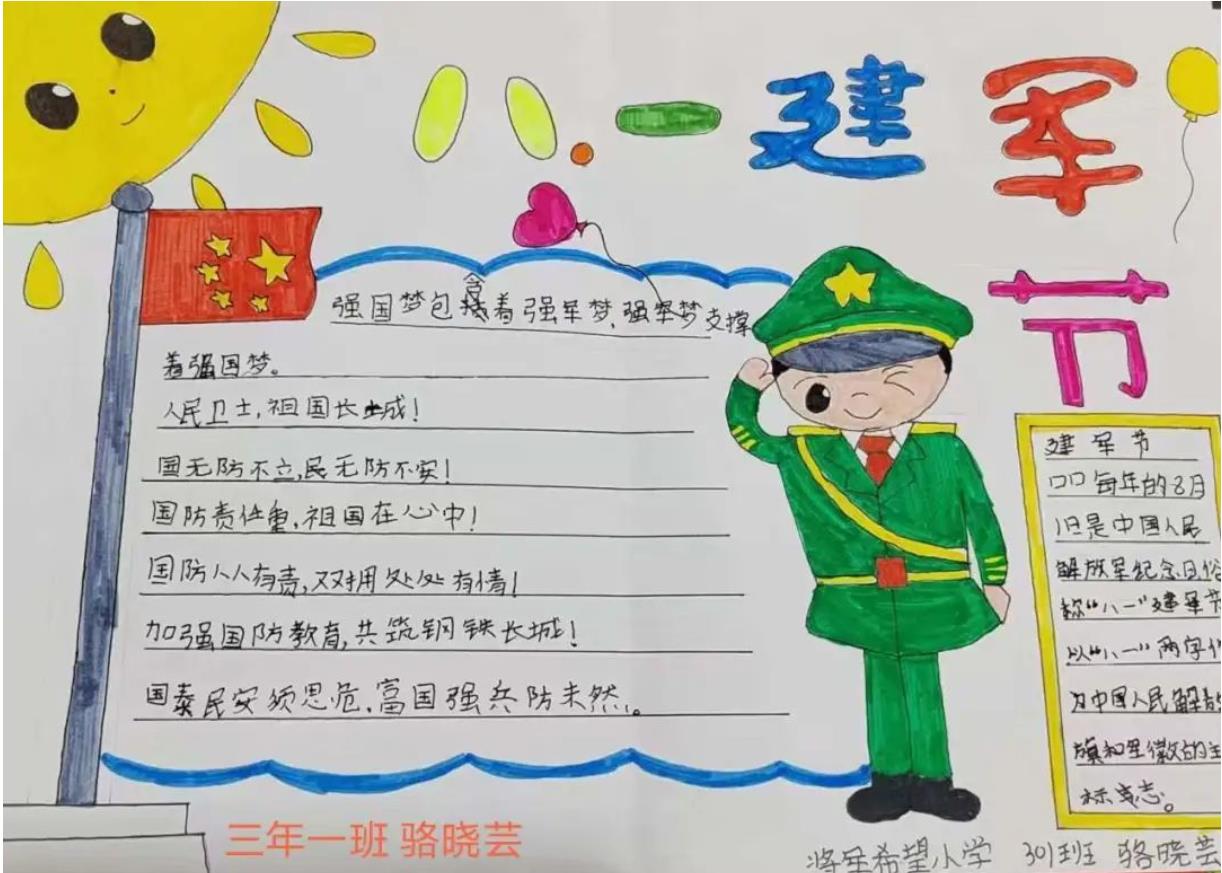 八.一建军
节
强国梦包含着强军梦,强军梦支撑
着强国梦。
人民卫士,祖国长城!
国无防不立,民无防不安!
国防责任重,祖国在心中!
国防人人有责,双拥处处有情!
加强国防教育,共筑钢铁长城!
国泰民安须思危,富国强兵防未然。
建军节
口口每年的8月
1日是中国人民
解放军纪念日俗
称“八一”建军节
以“八一”两字作
为中国人民解放
旗和军徽的主
标志。
三年一班 骆晓芸
将军希望小学 301班 骆晓芸